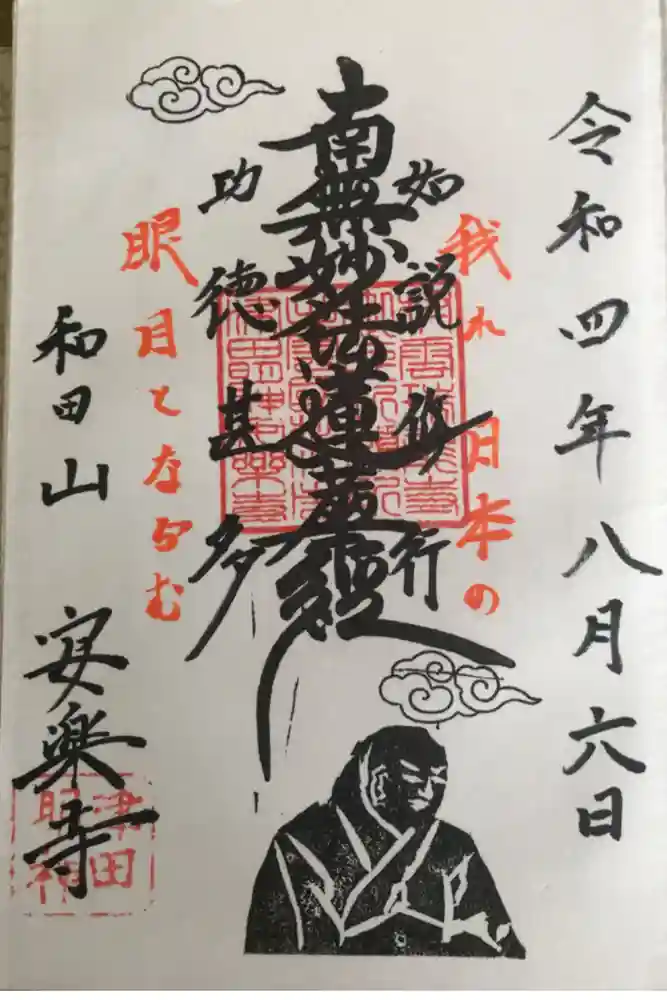 令和四年八月六日
我れ日本の
如説修行
南無妙法蓮華経
功徳甚多
眼目とならむ
和田山
安楽寺
津田
眼神